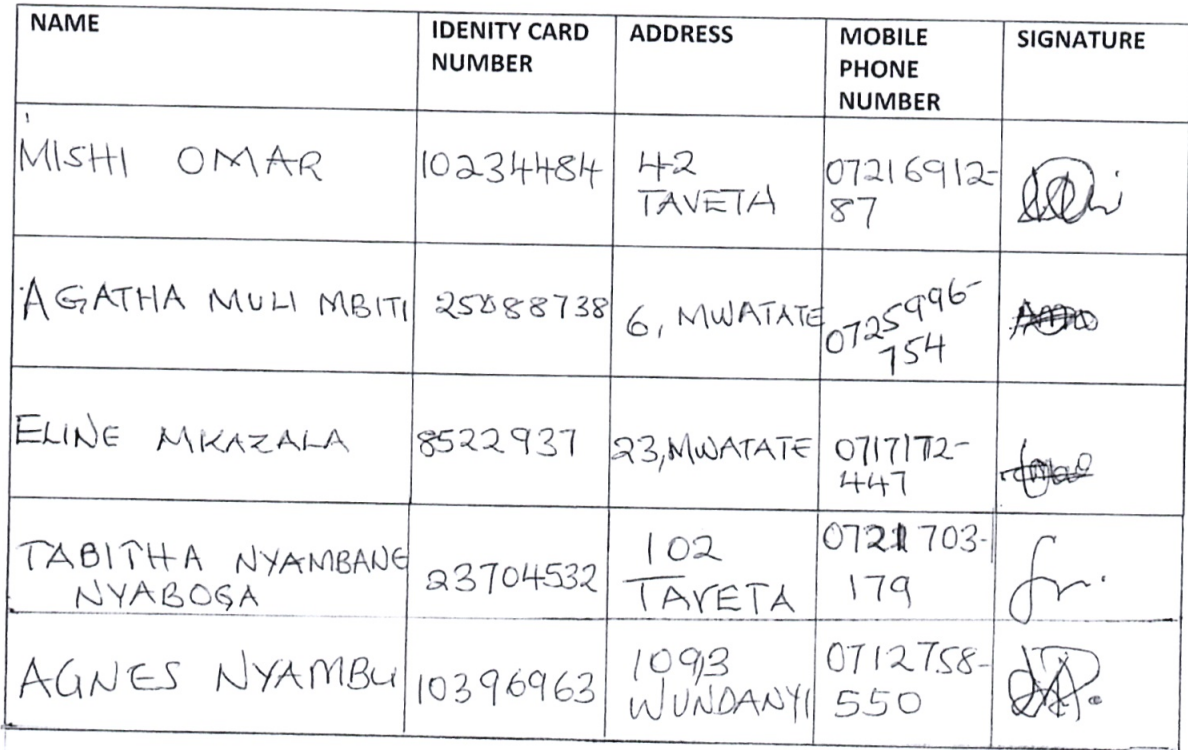 NAME
IDENITY CARD NUMBER
ADDRESS
MOBILE PHONE NUMBER
SIGNATURE
MISHI OMAR
10234484
42
TAVETA
07216912-
87
AGATHA MULI MBITI
6, MWATATE
0725996-
754
ELINE MKAZALA
8522937
23, MWATATE
0717172-
447
TABITHA NYAMBANE
NYABOGA
23704532
102
TAVETA
0721 703-
179
AGNES NYAMBU
10396963
1093
WUNDANYI
0712758-
550